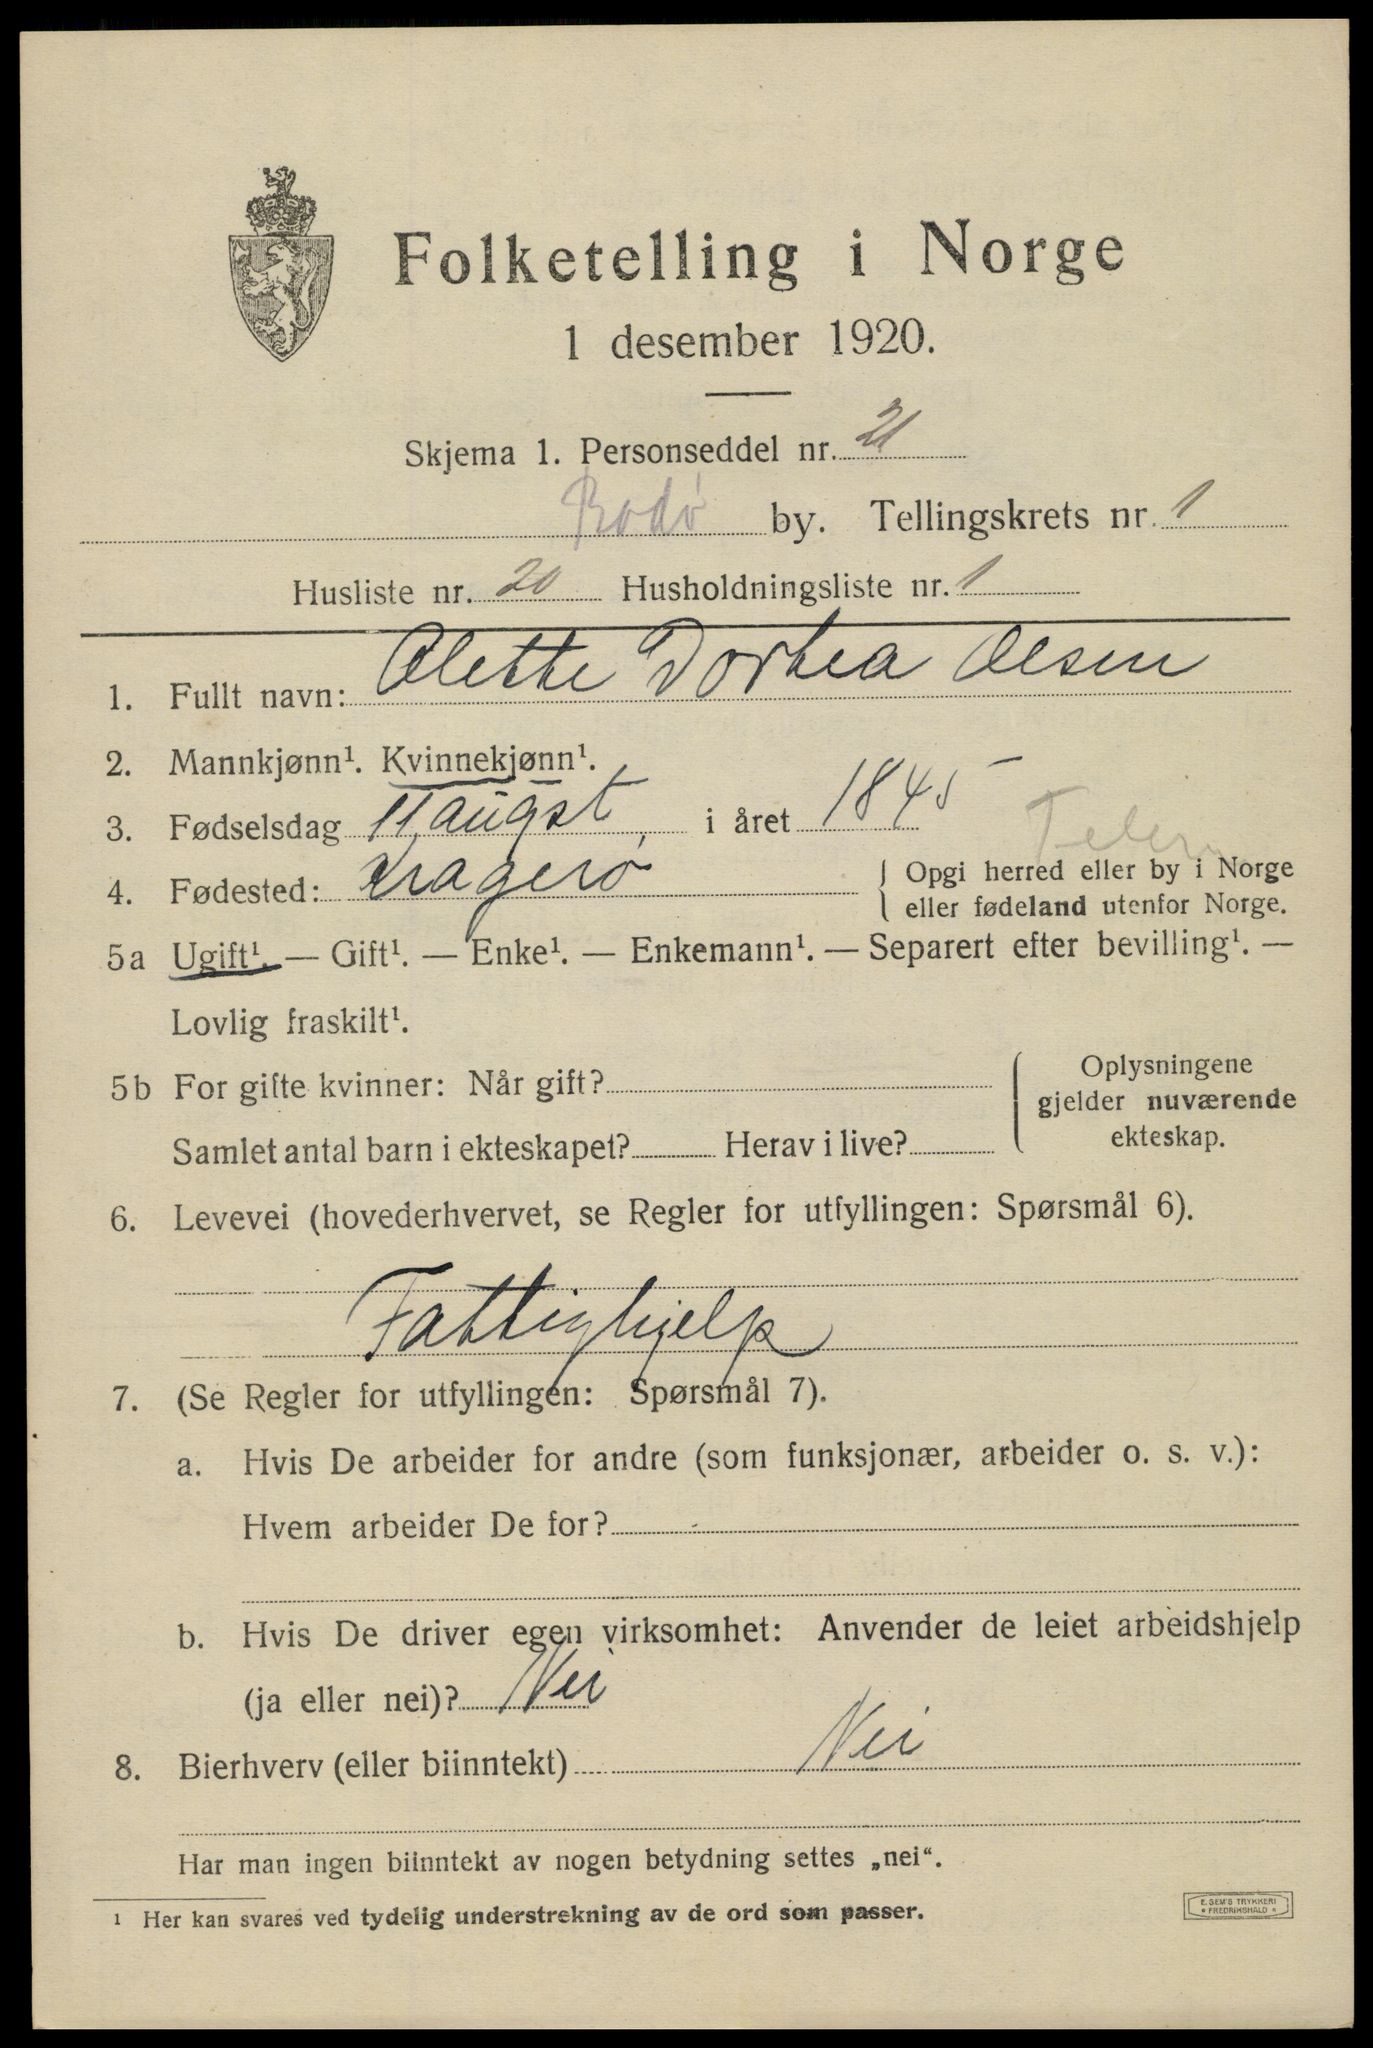 Folketelling i Norge
1 desember 1920.
Skjema 1. Personseddel nr. 21
Bodø by. Tellingskrets nr. 1
Husliste nr. 20 Husholdningsliste nr. 1
1. Fullt navn: Olette Dorthea Olsen
2. Mannkjønn¹. Kvinnekjønn¹.
3. Fødselsdag 11 augst i året 1845
4. Fødested: Kragerø { Opgi herred eller by i Norge
eller fødeland utenfor Norge.
5a Ugift¹. — Gift¹. — Enke¹. — Enkemann¹. — Separert efter bevilling¹. —
Lovlig fraskilt¹.
5b For gifte kvinner: Når gift? { Oplysningene
gjelder nuværende
Samlet antal barn i ekteskapet? Herav i live? ekteskap.
6. Levevei (hovederhvervet, se Regler for utfyllingen: Spørsmål 6).
Fattighjelp
7. (Se Regler for utfyllingen: Spørsmål 7).
a. Hvis De arbeider for andre (som funksjonær, arbeider o. s. v.):
Hvem arbeider De for?
b. Hvis De driver egen virksomhet: Anvender de leiet arbeidshjelp
(ja eller nei)? Nei
8. Bierhverv (eller biinntekt) Nei
Har man ingen biinntekt av nogen betydning settes „nei“.
1 Her kan svares ved tydelig understrekning av de ord som passer.
E. SEM'S TRYKKERI
* FREDRIKSHALD *